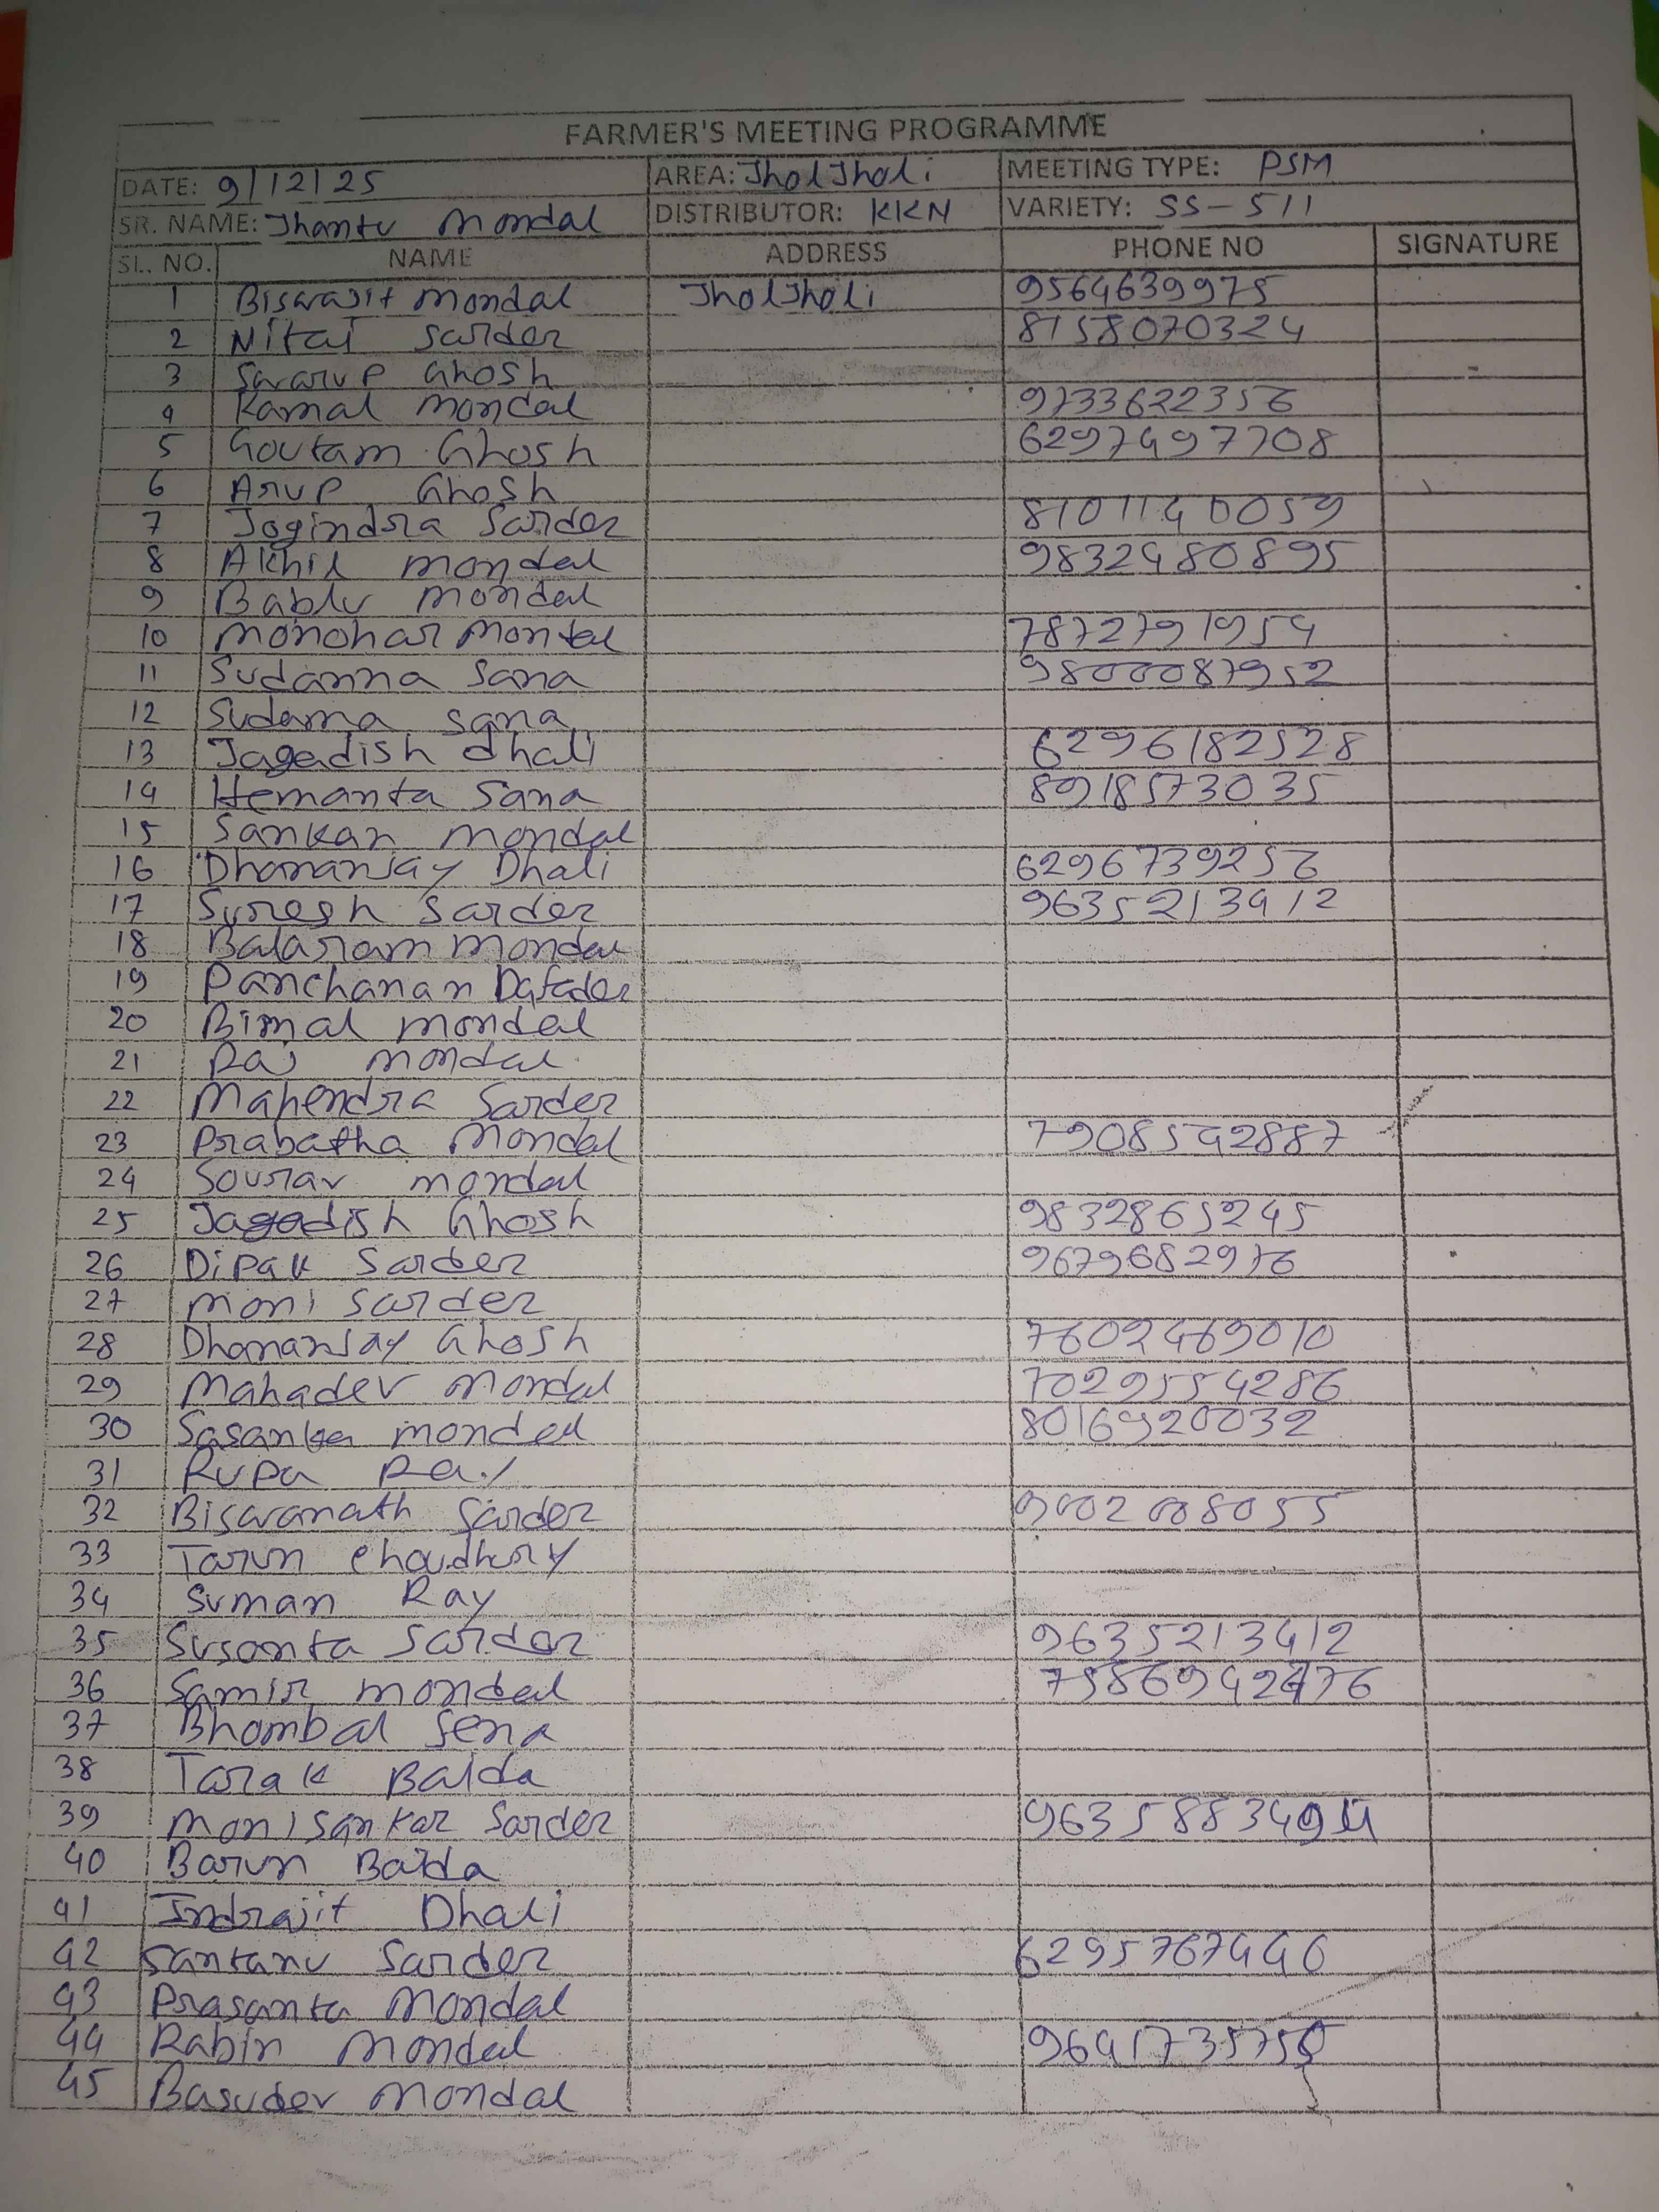 FARMER'S MEETING PROGRAMME
DATE: 9/12/25 AREA: JholJhali MEETING TYPE: PSM
SR. NAME: Jhantu Mondal DISTRIBUTOR: KKN VARIETY: SS-511
SL. NO. NAME ADDRESS PHONE NO SIGNATURE
1 Biswajit Mondal JholJhali 9564639975
2 Nitai Sarder 8158070324
3 Swarup Ghosh
4 Kamal Mondal 9733622356
5 Goutam Ghosh 6297497708
6 Arup Ghosh
7 Jogindra Sarder 8101140059
8 Akhil Mondal 9832480895
9 Bablu Mondal
10 Monohar Mondal 7872791954
11 Sudanna Sana 9800087952
12 Sudama Sana
13 Jagadish Dhali 6296182528
14 Hemanta Sana 8918573035
15 Sankar Mondal
16 Dhananjay Dhali 6296739256
17 Suresh Sarder 9635213412
18 Balaram Mondal
19 Panchanan Dafader
20 Bimal Mondal
21 Raj Mondal
22 Mahendra Sarder
23 Prabatha Mondal 7908542887
24 Sourav Mondal
25 Jagadish Ghosh 9832865245
26 Dipak Sarder 9679682976
27 Moni Sarder
28 Dhananjay Ghosh 7602469010
29 Mahadev Mondal 7029554286
30 Sasanka Mondal 8016920032
31 Rupa Ray
32 Biswanath Sarder 9002008055
33 Tarun Choudhury
34 Suman Ray
35 Susanta Sarder 9635213412
36 Samir Mondal
37 Bhombal Sena
38 Tarak Balda
39 Monisankar Sarder
40 Barun Balda
41 Indrajit Dhali
42 Santanu Sarder 6295767446
43 Prasanta Mondal
44 Rabin Mondal
45 Basudev Mondal